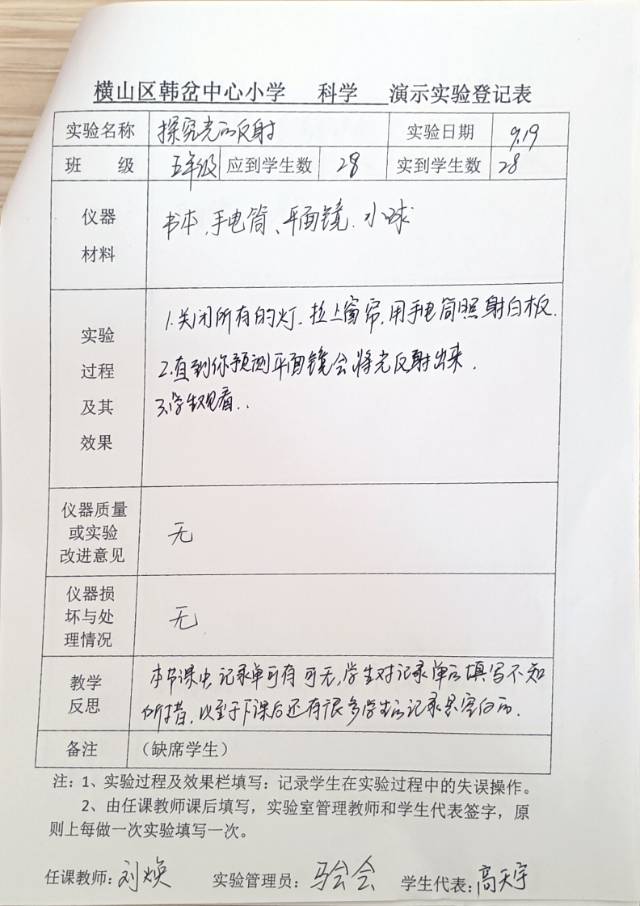 横山区韩岔中心小学 科学 演示实验登记表
实验名称 探究光的反射 实验日期 9.19
班 级 五年级 应到学生数 28 实到学生数 28
仪器
材料
书本、手电筒、平面镜、小球
实验
过程
及其
效果
1.关闭所有的灯.拉上窗帘,用手电筒照射白板.
2.直到你预测平面镜会将光反射出来.
3.学生观看..
仪器质量
或实验
改进意见
无
仪器损
坏与处
理情况
无
教学
反思
本节课中记录单可有可无,学生对记录单的填写不知
所措,以至于下课后还有很多学生的记录是空白的.
备注 (缺席学生)
注:1、实验过程及效果栏填写:记录学生在实验过程中的失误操作。
2、由任课教师课后填写,实验室管理教师和学生代表签字,原
则上每做一次实验填写一次。
任课教师:刘焕 实验管理员:马会会 学生代表:高天宇